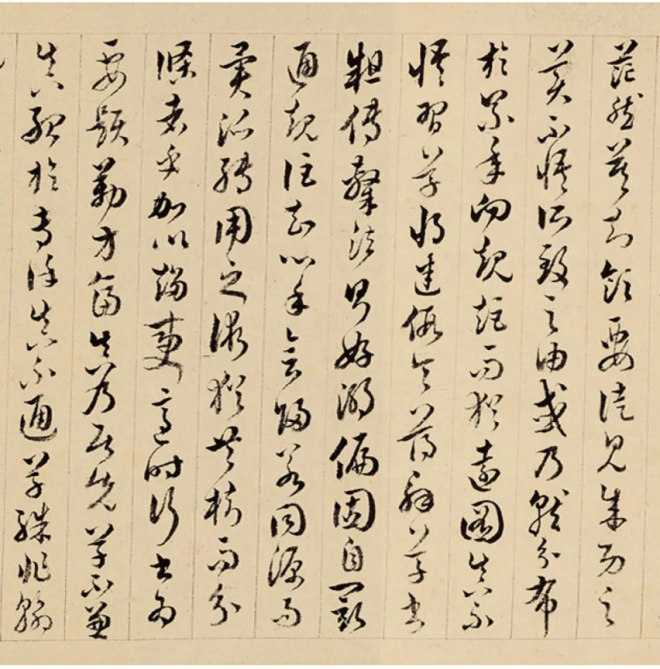 茫然莫知領要徒見成功之
美不悟所致之由或乃就分布
於累年向規矩而猶遠圖真不
悟習草將迷假令薄解草書
粗傳隸法則好溺偏固自閡
通規詎知心手會歸若同源而
異派轉用之術猶共樹而分
條者乎加以趨變適時行書為
要題勒方畐真乃居先草不兼
真殆於專謹真不通草殊非翰